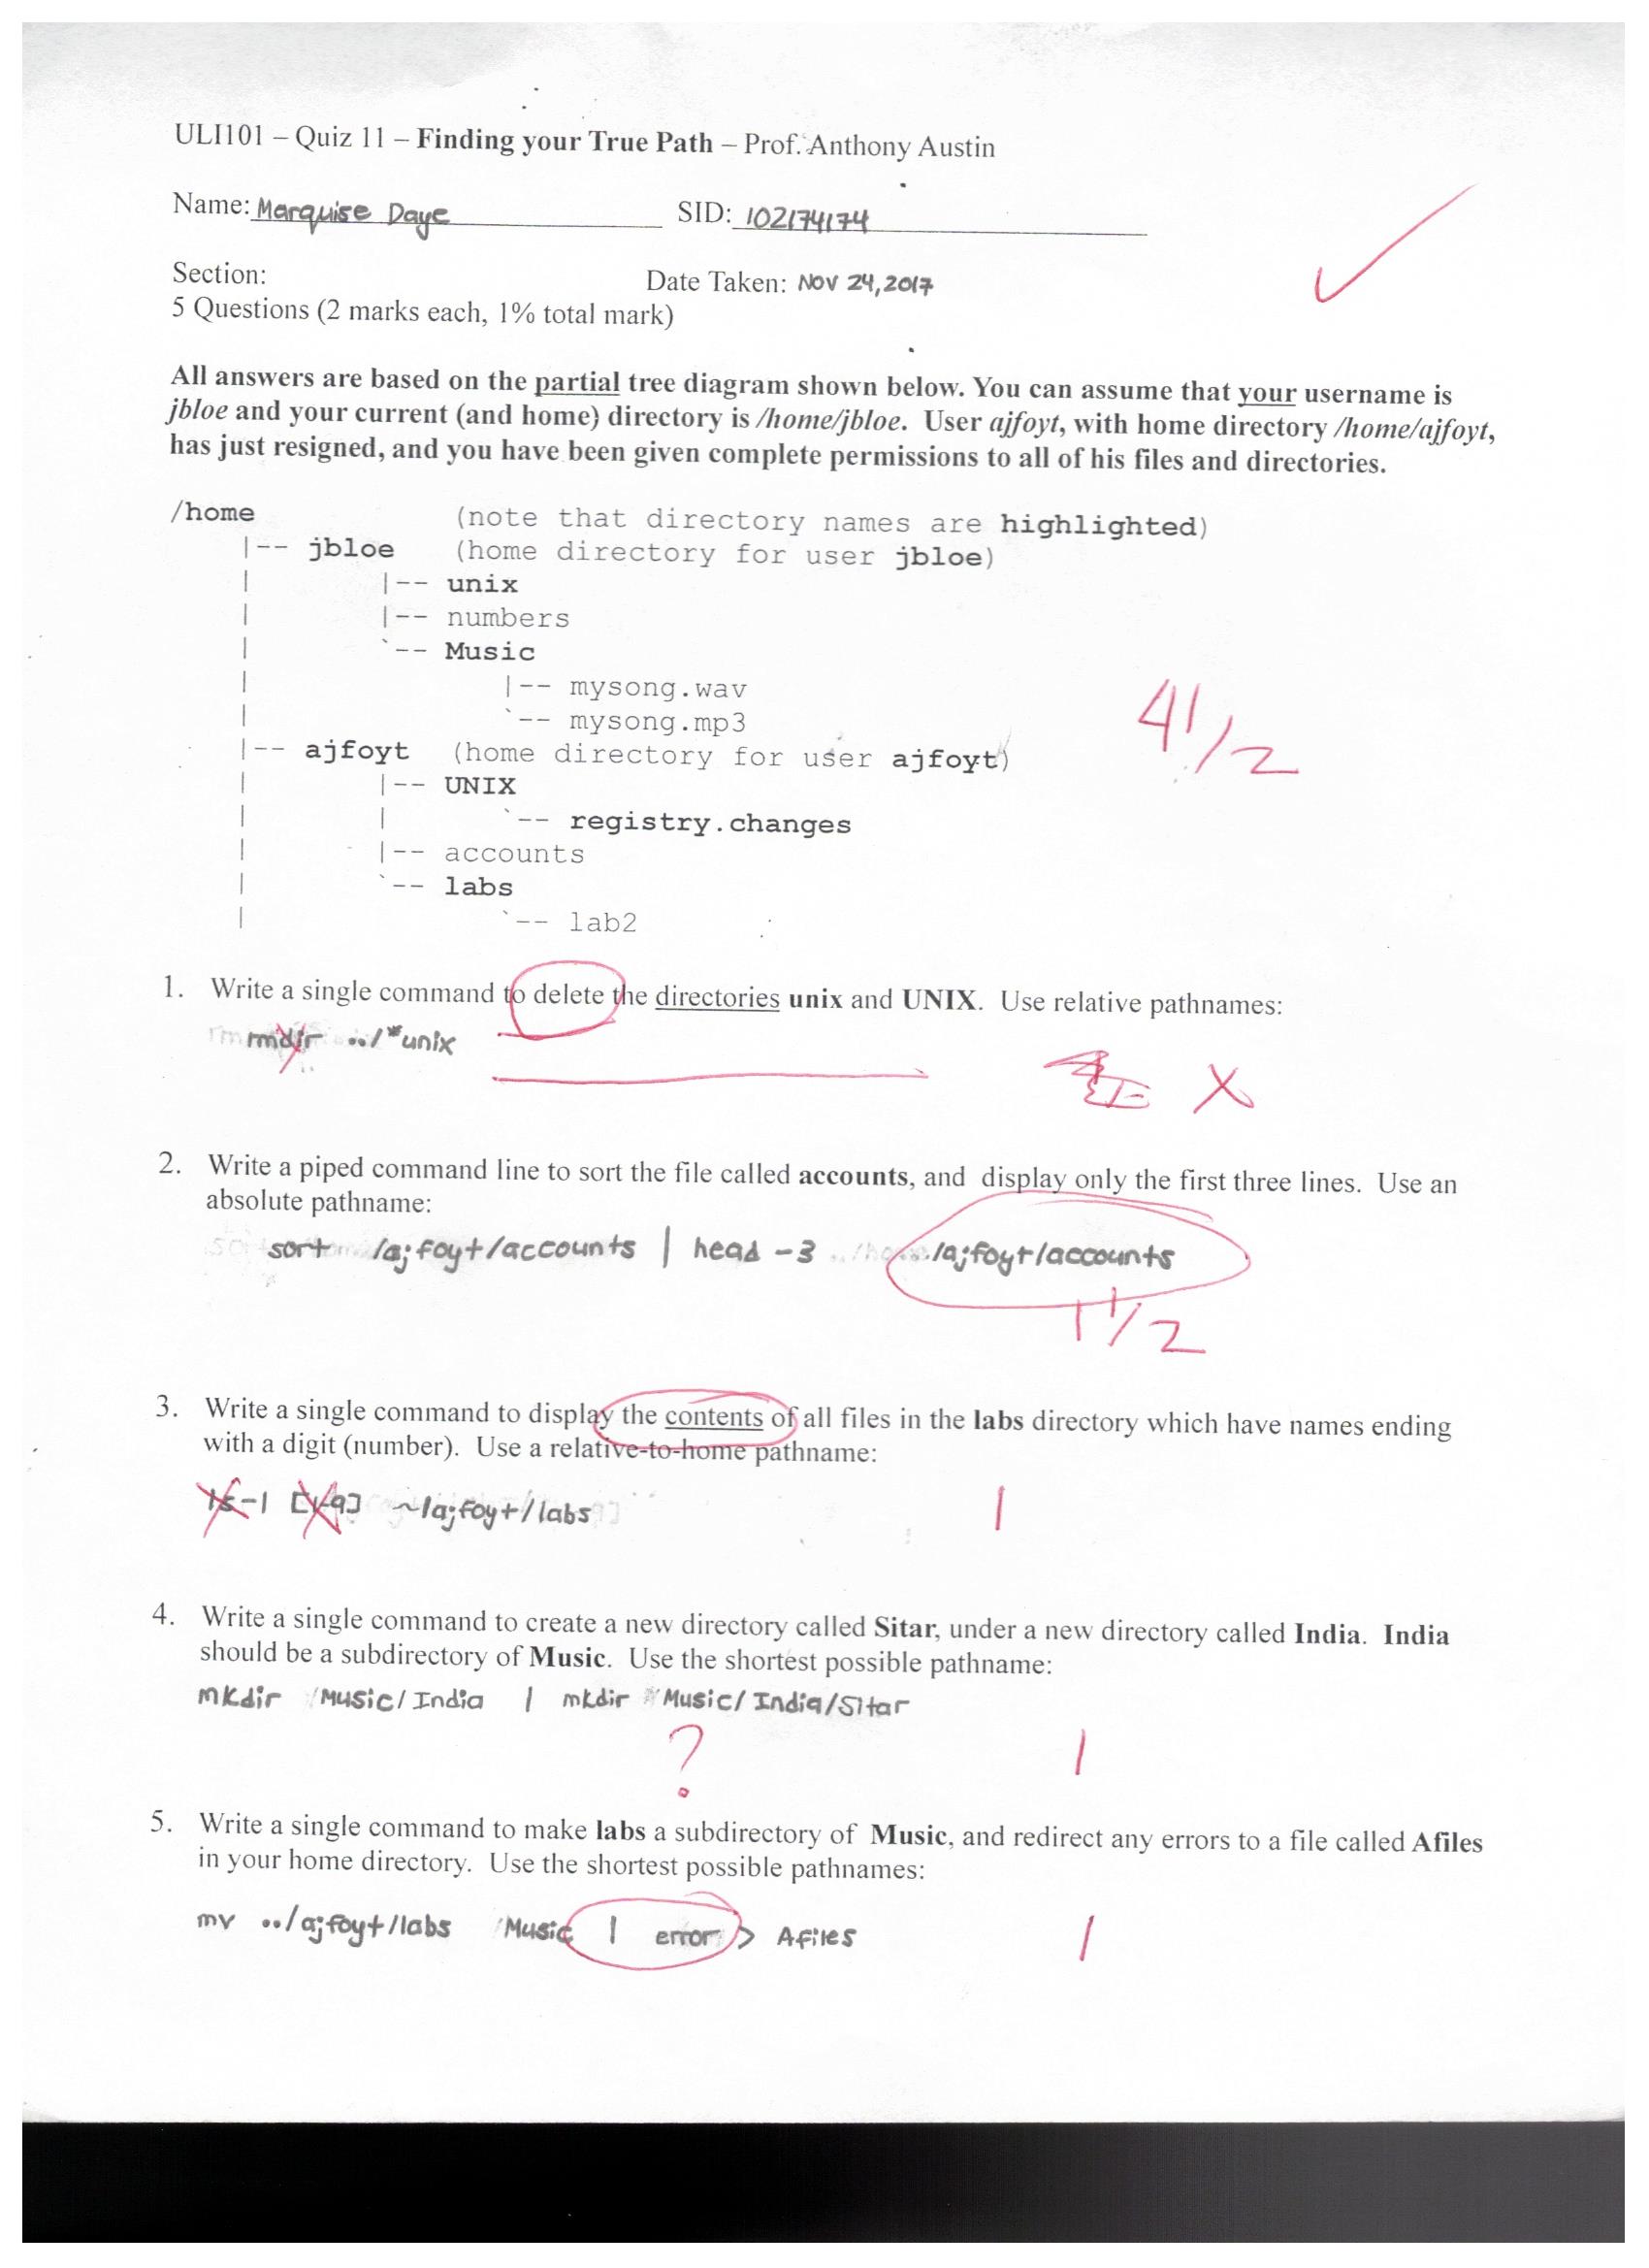 ULI101 – Quiz 11 – Finding your True Path – Prof. Anthony Austin
Name: Marquise Daye SID: 102174174
Section: Date Taken: Nov 24, 2017
5 Questions (2 marks each, 1% total mark)
All answers are based on the partial tree diagram shown below. You can assume that your username is
jbloe and your current (and home) directory is /home/jbloe. User ajfoyt, with home directory /home/ajfoyt,
has just resigned, and you have been given complete permissions to all of his files and directories.
/home (note that directory names are highlighted)
|-- jbloe (home directory for user jbloe)
| |-- unix
| |-- numbers
| `-- Music
| |-- mysong.wav
| `-- mysong.mp3
|-- ajfoyt (home directory for user ajfoyt)
| |-- UNIX
| | `-- registry.changes
| |-- accounts
| `-- labs
| `-- lab2
4 1/2
1. Write a single command to delete the directories unix and UNIX. Use relative pathnames:
rmdir ../*unix
X
2. Write a piped command line to sort the file called accounts, and display only the first three lines. Use an
absolute pathname:
sort /ajfoyt/accounts | head -3 /ajfoyt/accounts
1 1/2
3. Write a single command to display the contents of all files in the labs directory which have names ending
with a digit (number). Use a relative-to-home pathname:
ls -l [1-9] ~/ajfoyt/labs
1
4. Write a single command to create a new directory called Sitar, under a new directory called India. India
should be a subdirectory of Music. Use the shortest possible pathname:
mkdir Music/India | mkdir Music/India/Sitar
? 1
5. Write a single command to make labs a subdirectory of Music, and redirect any errors to a file called Afiles
in your home directory. Use the shortest possible pathnames:
mv ../ajfoyt/labs Music | error > Afiles
1